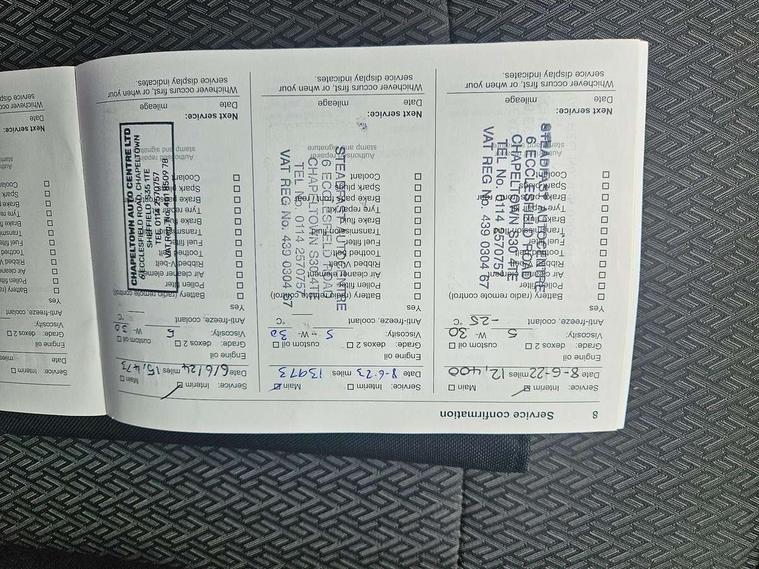 8 Service confirmation
Service: ☑ Interim ☐ Main
Date 8-6-22 miles 12,400
Engine oil
Grade: ☐ dexos 2 ☐ custom oil
Viscosity: 5 W- 30
Anti-freeze, coolant -25 °C
Yes
☐ Battery (radio remote control)
☐ Pollen filter
☐ Air cleaner element
☐ Ribbed V-belt
☐ Toothed
☐ Fuel filter
☐ Transmission fluid
☐ Brake fluid
☐ Tyre repair kit
☐ Brake
☐ Spark plugs
☐ Coolant
STEADFAST AUTOCENTRE
6 ECCLESFIELD ROAD
CHAPELTOWN S30 4TE
TEL No. 0114 2570757
VAT REG No. 439 0304 67
Next service:
Date mileage
Whichever occurs first, or when your
service display indicates.
Service: ☐ Interim ☑ Main
Date 8-6-23 miles 13973
Engine oil
Grade: ☐ dexos 2 ☐ custom oil
Viscosity: 5 - W- 30
Anti-freeze, coolant °C
Yes
☐ Battery (radio remote control)
☐ Pollen filter
☐ Air cleaner element
☐ Ribbed V-belt
☐ Toothed
☐ Fuel filter
☐ Transmission fluid
☐ Brake fluid
☐ Tyre repair kit
☐ Brake front / rear
☐ Spark plugs
☐ Coolant
Authorised repairer
stamp and signature
STEADFAST AUTOCENTRE
6 ECCLESFIELD ROAD
CHAPELTOWN S30 4TE
TEL No. 0114 2570757
VAT REG No. 439 0304 67
Next service:
Date mileage
Whichever occurs first, or when your
service display indicates.
Service: ☑ Interim ☐ Main
Date 6/6/24 miles 15,473
Engine oil
Grade: ☐ dexos 2 ☐ custom oil
Viscosity: 5 W- 30
Anti-freeze, coolant °C
Yes
☐ Battery (radio remote control)
☐ Pollen filter
☐ Air cleaner element
☐ Ribbed V-belt
☐ Toothed
☐ Fuel filter
☐ Transmission
☐ Brake
☐ Tyre repair
☐ Brake
☐ Spark
☐ Coolant
CHAPELTOWN AUTO CENTRE LTD
6 ECCLESFIELD ROAD, CHAPELTOWN
SHEFFIELD S35 1TE
TEL 0114 2570757
Next service:
Date mileage
Whichever occurs first, or when your
service display indicates.
Service: ☐ Interim
Date miles
Engine oil
Grade: ☐
Viscosity:
Anti-freeze, coolant
Yes
☐ Battery (radio
☐ Pollen filter
☐ Air cleaner
☐ Ribbed V
☐ Toothed
☐ Fuel filter
☐ Transmission
☐ Brake fluid
☐ Tyre
☐ Brake
☐ Spark
☐ Coolant
Next service:
Date
Whichever occurs
service display